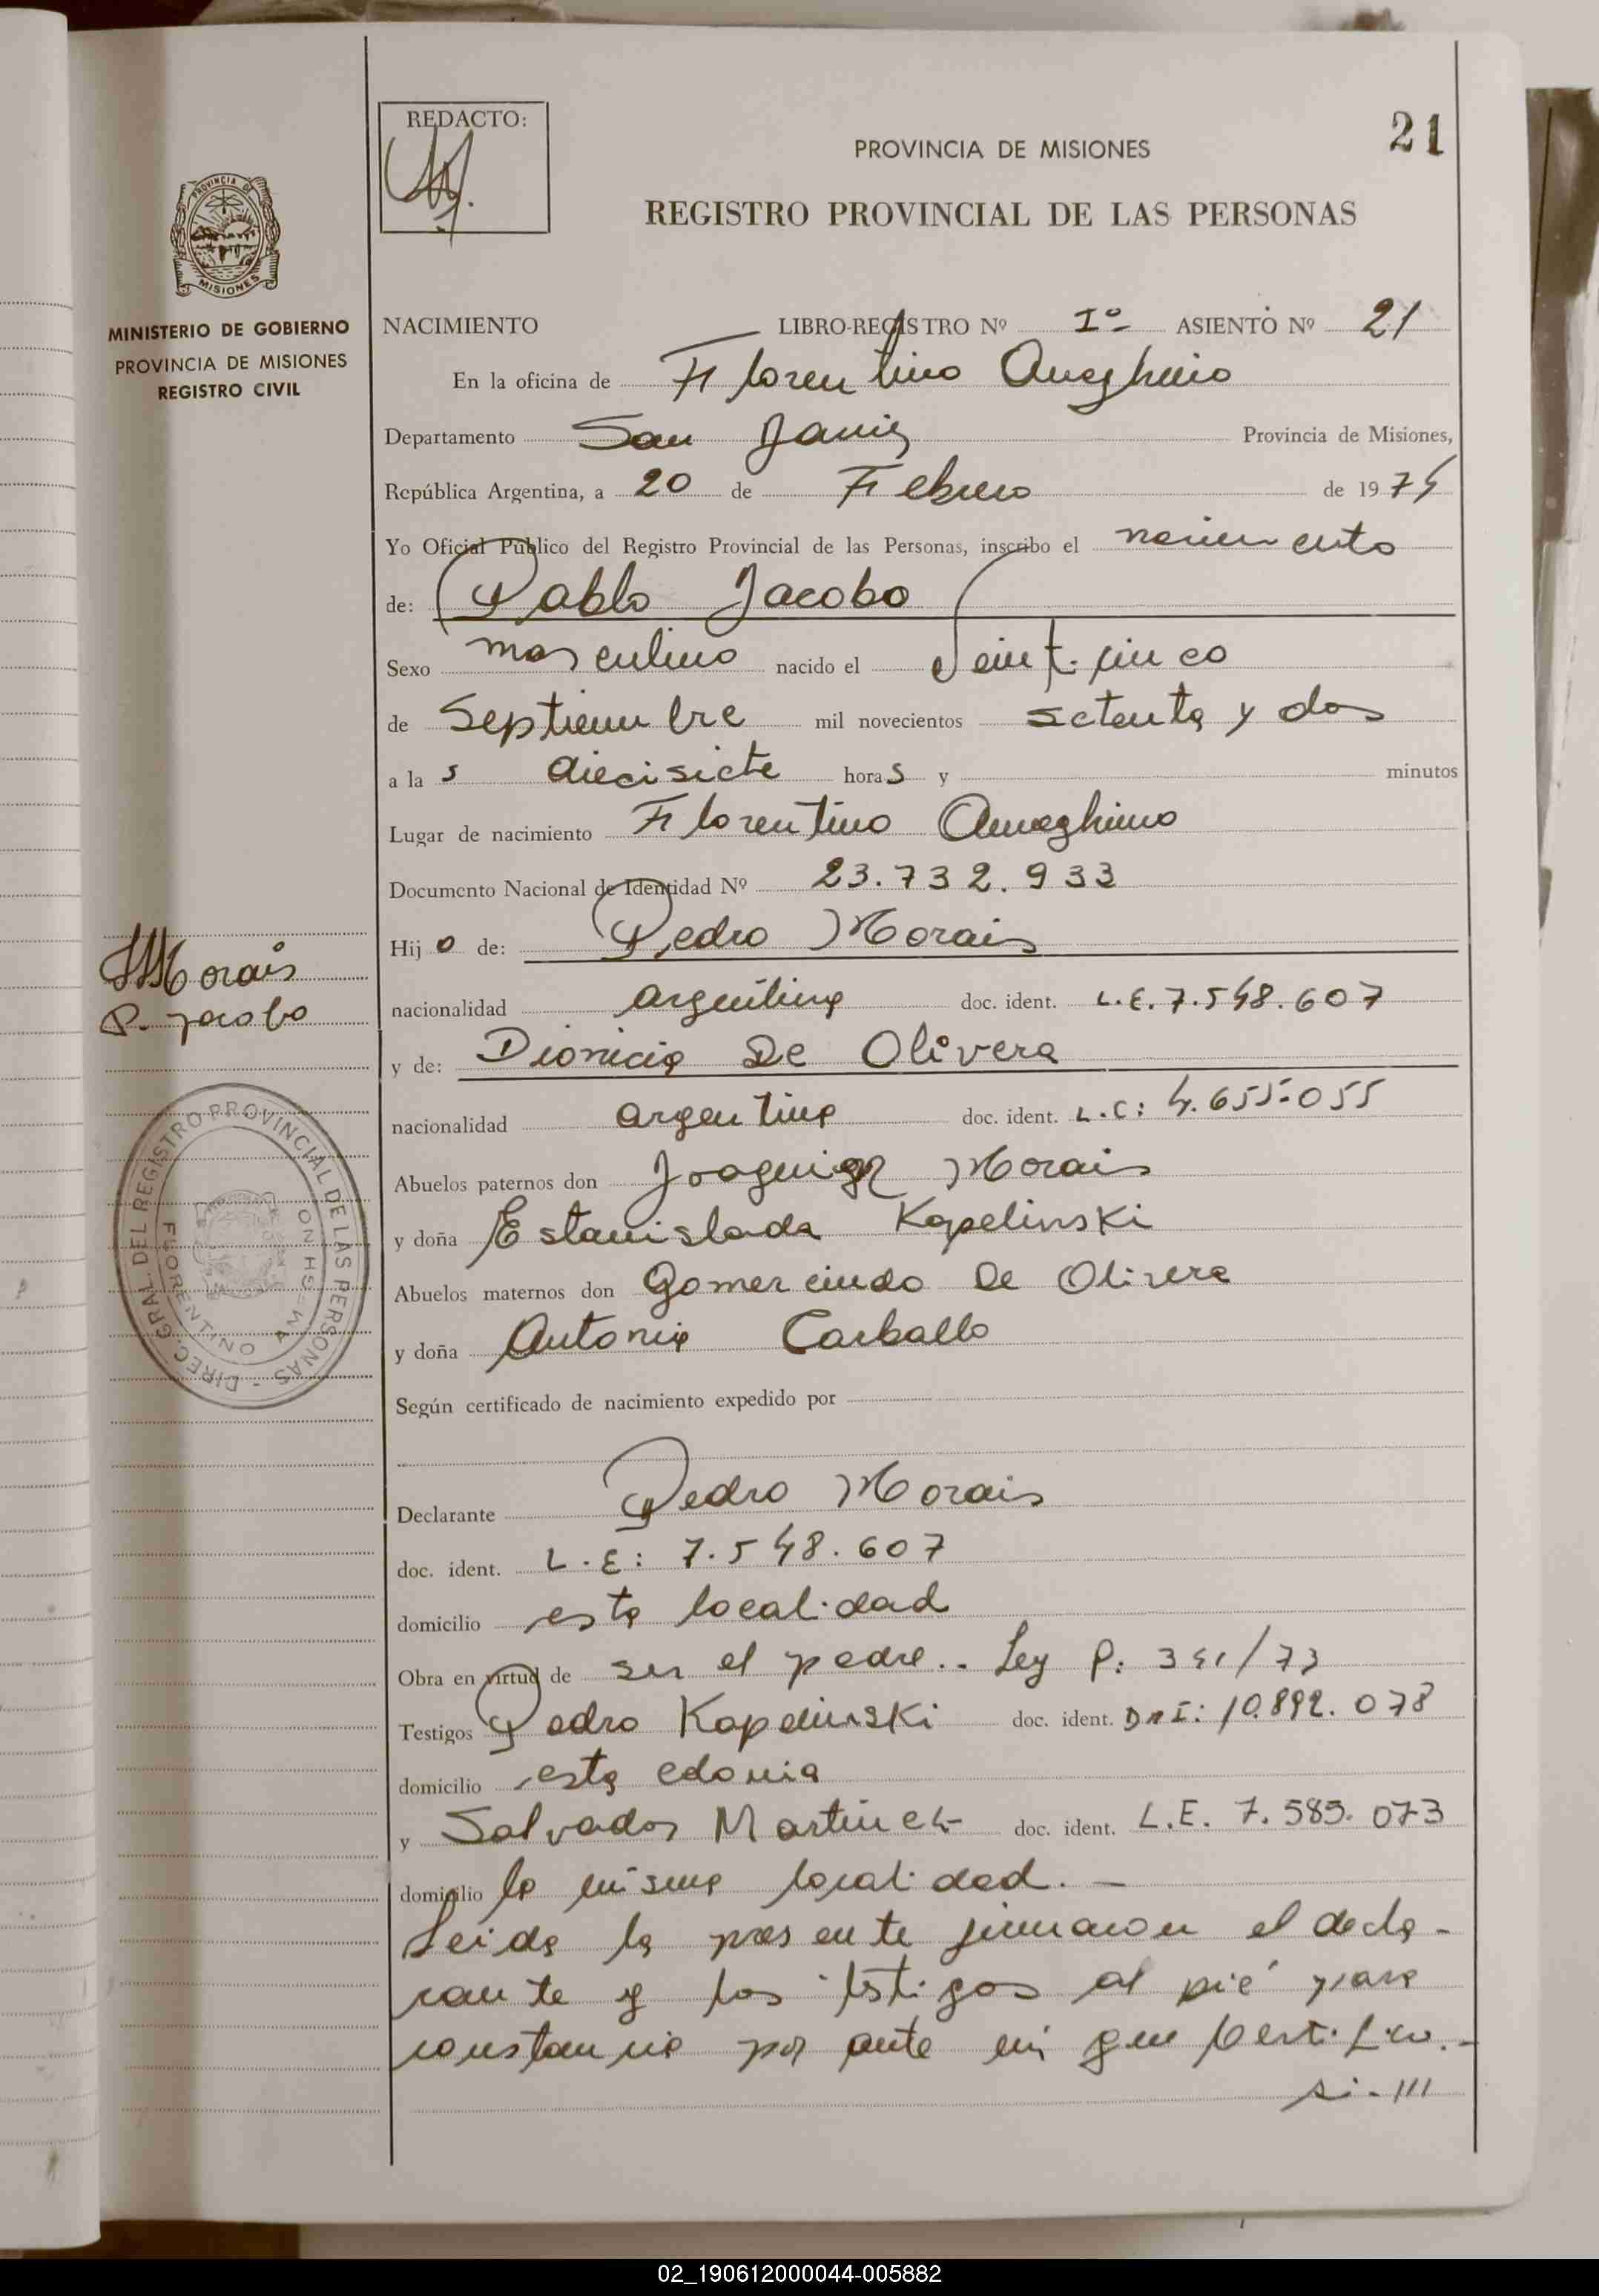 REDACTO:
21
PROVINCIA DE MISIONES
REGISTRO PROVINCIAL DE LAS PERSONAS
PROVINCIA DE
MISIONES
MINISTERIO DE GOBIERNO
PROVINCIA DE MISIONES
REGISTRO CIVIL
NACIMIENTO LIBRO-REGISTRO Nº Iº ASIENTO Nº 21
En la oficina de Florentino Ameghino
Departamento San Javier Provincia de Misiones,
República Argentina, a 20 de Febrero de 1974
Yo Oficial Público del Registro Provincial de las Personas, inscribo el nacimiento
de: Pablo Jacobo
Sexo masculino nacido el Veinticinco
de Septiembre mil novecientos setenta y dos
a la s diecisiete hora s y minutos
Lugar de nacimiento Florentino Ameghino
Documento Nacional de Identidad Nº 23.732.933
Hij o de: Pedro Morais
nacionalidad argentina doc. ident. L.E. 7.548.607
y de: Dionicia De Olivera
nacionalidad argentina doc. ident. L.C: 4.655.055
Abuelos paternos don Morais
y doña Estanislada Kapelinski
Abuelos maternos don Gomercindo De Olivera
y doña Antonia Carballo
Según certificado de nacimiento expedido por
Declarante Pedro Morais
doc. ident. L.E: 7.548.607
domicilio esta localidad
Obra en virtud de ser el padre.. Ley P: 341/73
Testigos Pedro Kapelinski doc. ident. DNI: 10.892.078
domicilio esta colonia
y Salvador Martinez doc. ident. L.E. 7.585.073
domicilio la misma localidad. —
Leida la presente firmaron el decla-
rante y los testigos al pié para
constancia por ante mi que Certifico.-
si-///
Morais
P. Jacobo
DIREC. GRAL. DEL REGISTRO PROVINCIAL DE LAS PERSONAS -
FLORENTINO AMEGHINO
02_190612000044-005882